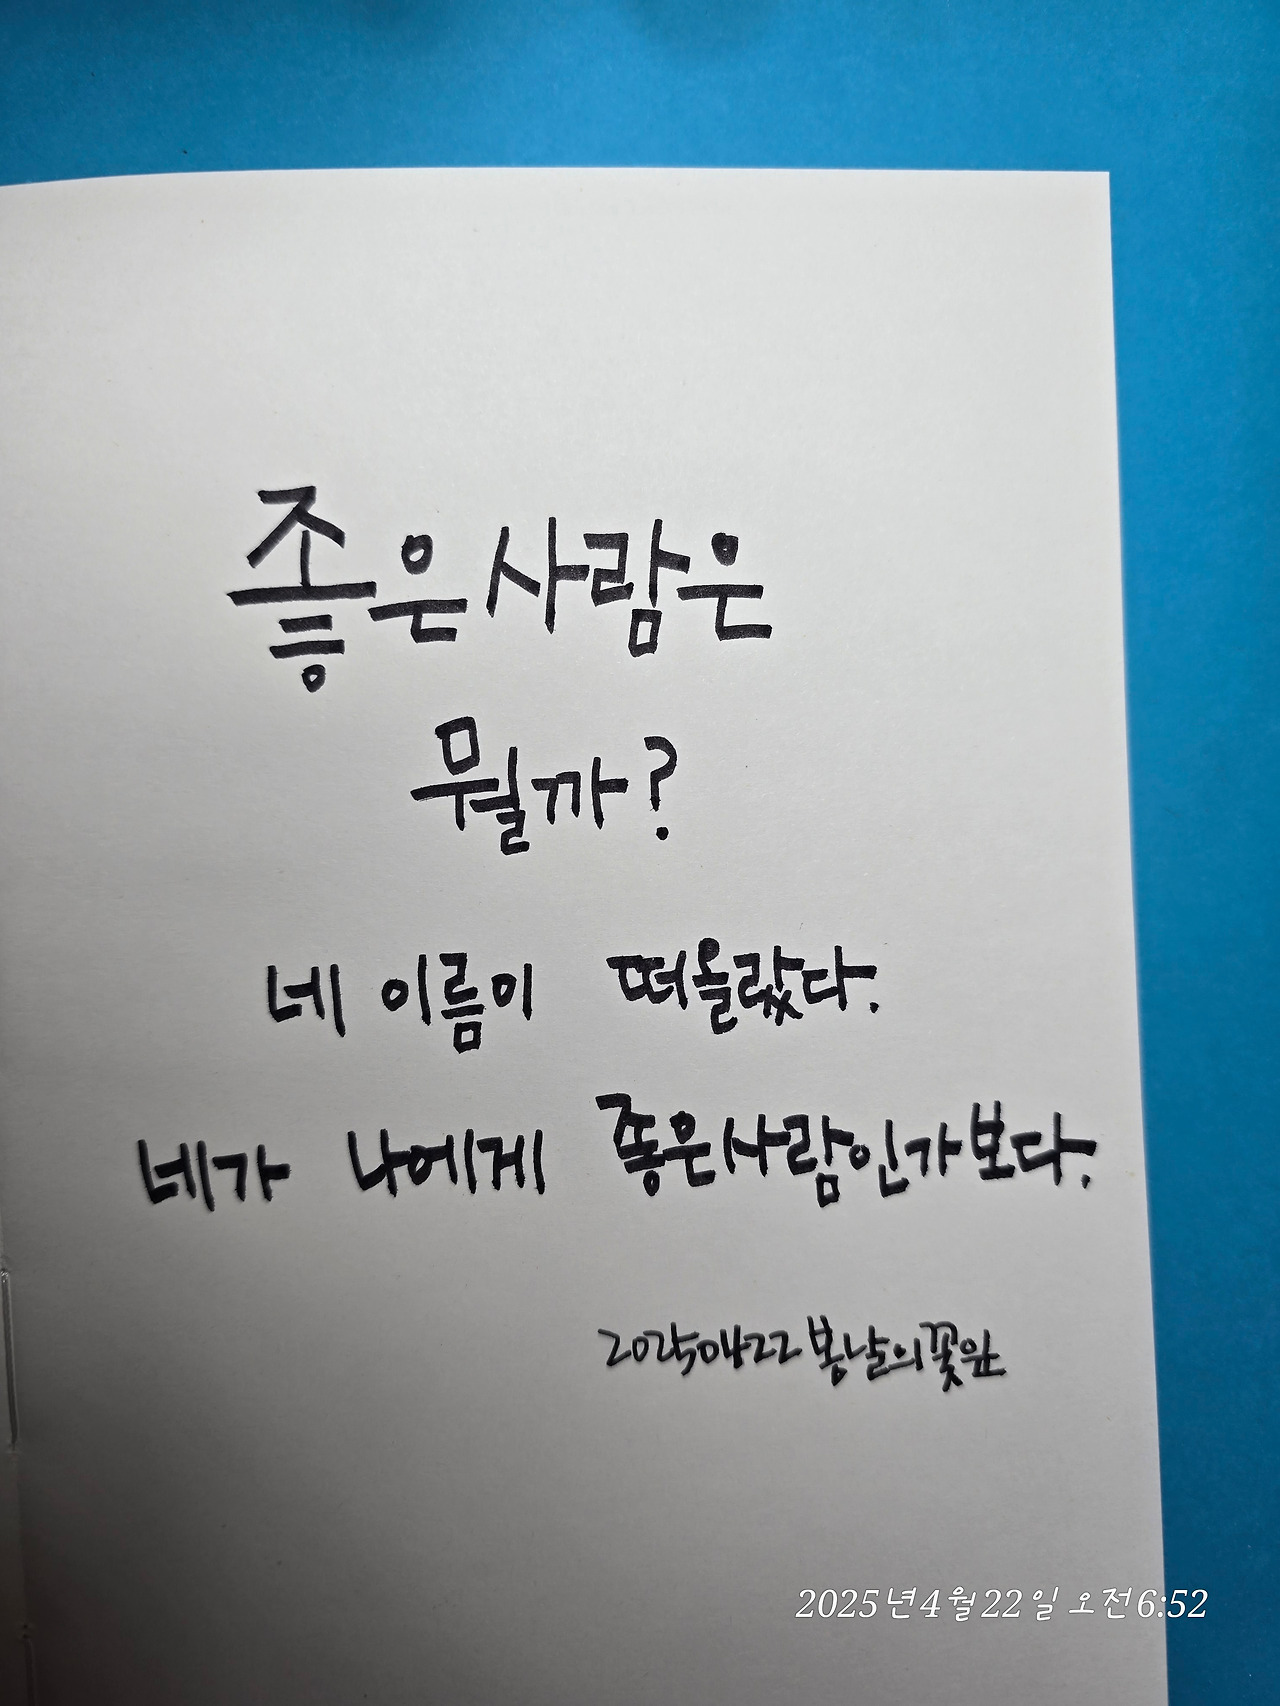 좋은사람은
뭘까?
네 이름이 떠올랐다.
네가 나에게 좋은사람인가보다.
20250422 봄날의꽃잎
2025년 4월 22일 오전 6:52